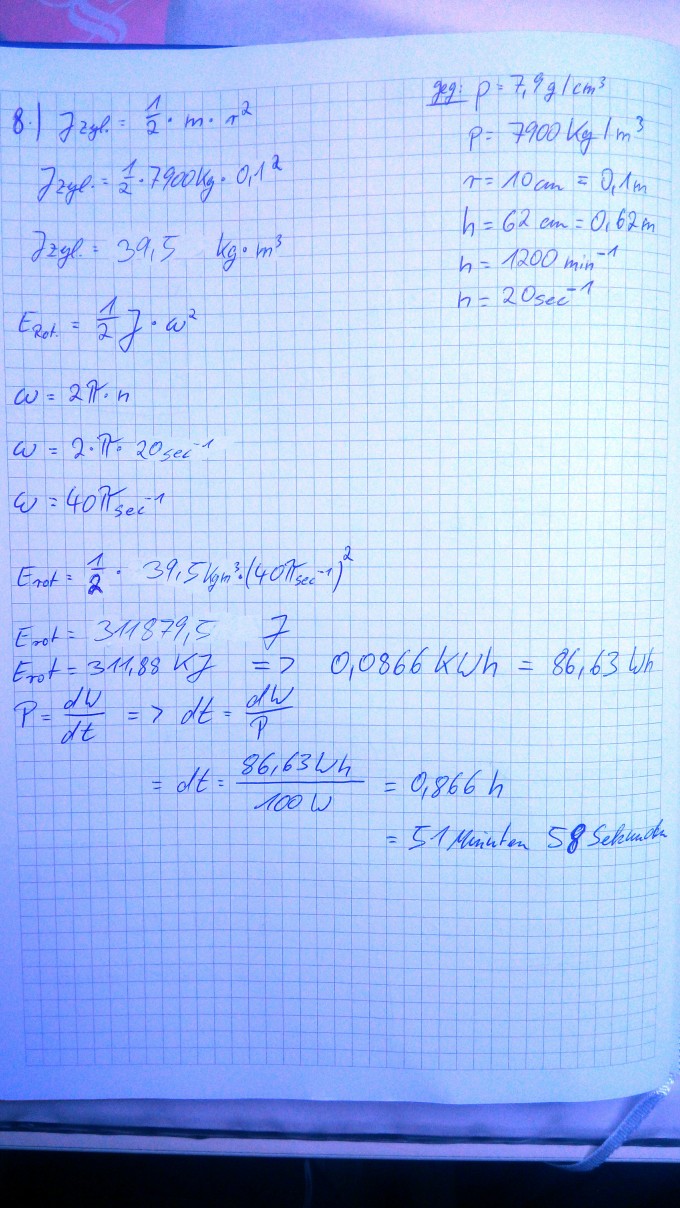 8.) Jzyl. = 1/2 · m · r²
Jzyl. = 1/2 · 7900Kg · 0,1²
Jzyl. = 39,5 kg · m³
ERot. = 1/2 J · ω²
ω = 2π · n
ω = 2 · π · 20sec⁻¹
ω = 40π sec⁻¹
Erot = 1/2 · 39,5 Kgm³ · (40π sec⁻¹)²
Erot = 311879,5 J
Erot = 311,88 KJ => 0,0866 KWh = 86,63 Wh
P = dW/dt => dt = dW/P
= dt = 86,63 Wh/100 W = 0,866 h
= 51 Minuten 58 Sekunden
geg: ρ = 7,9 g/cm³
ρ = 7900 Kg/m³
r = 10 cm = 0,1 m
h = 62 cm = 0,62 m
n = 1200 min⁻¹
n = 20 sec⁻¹